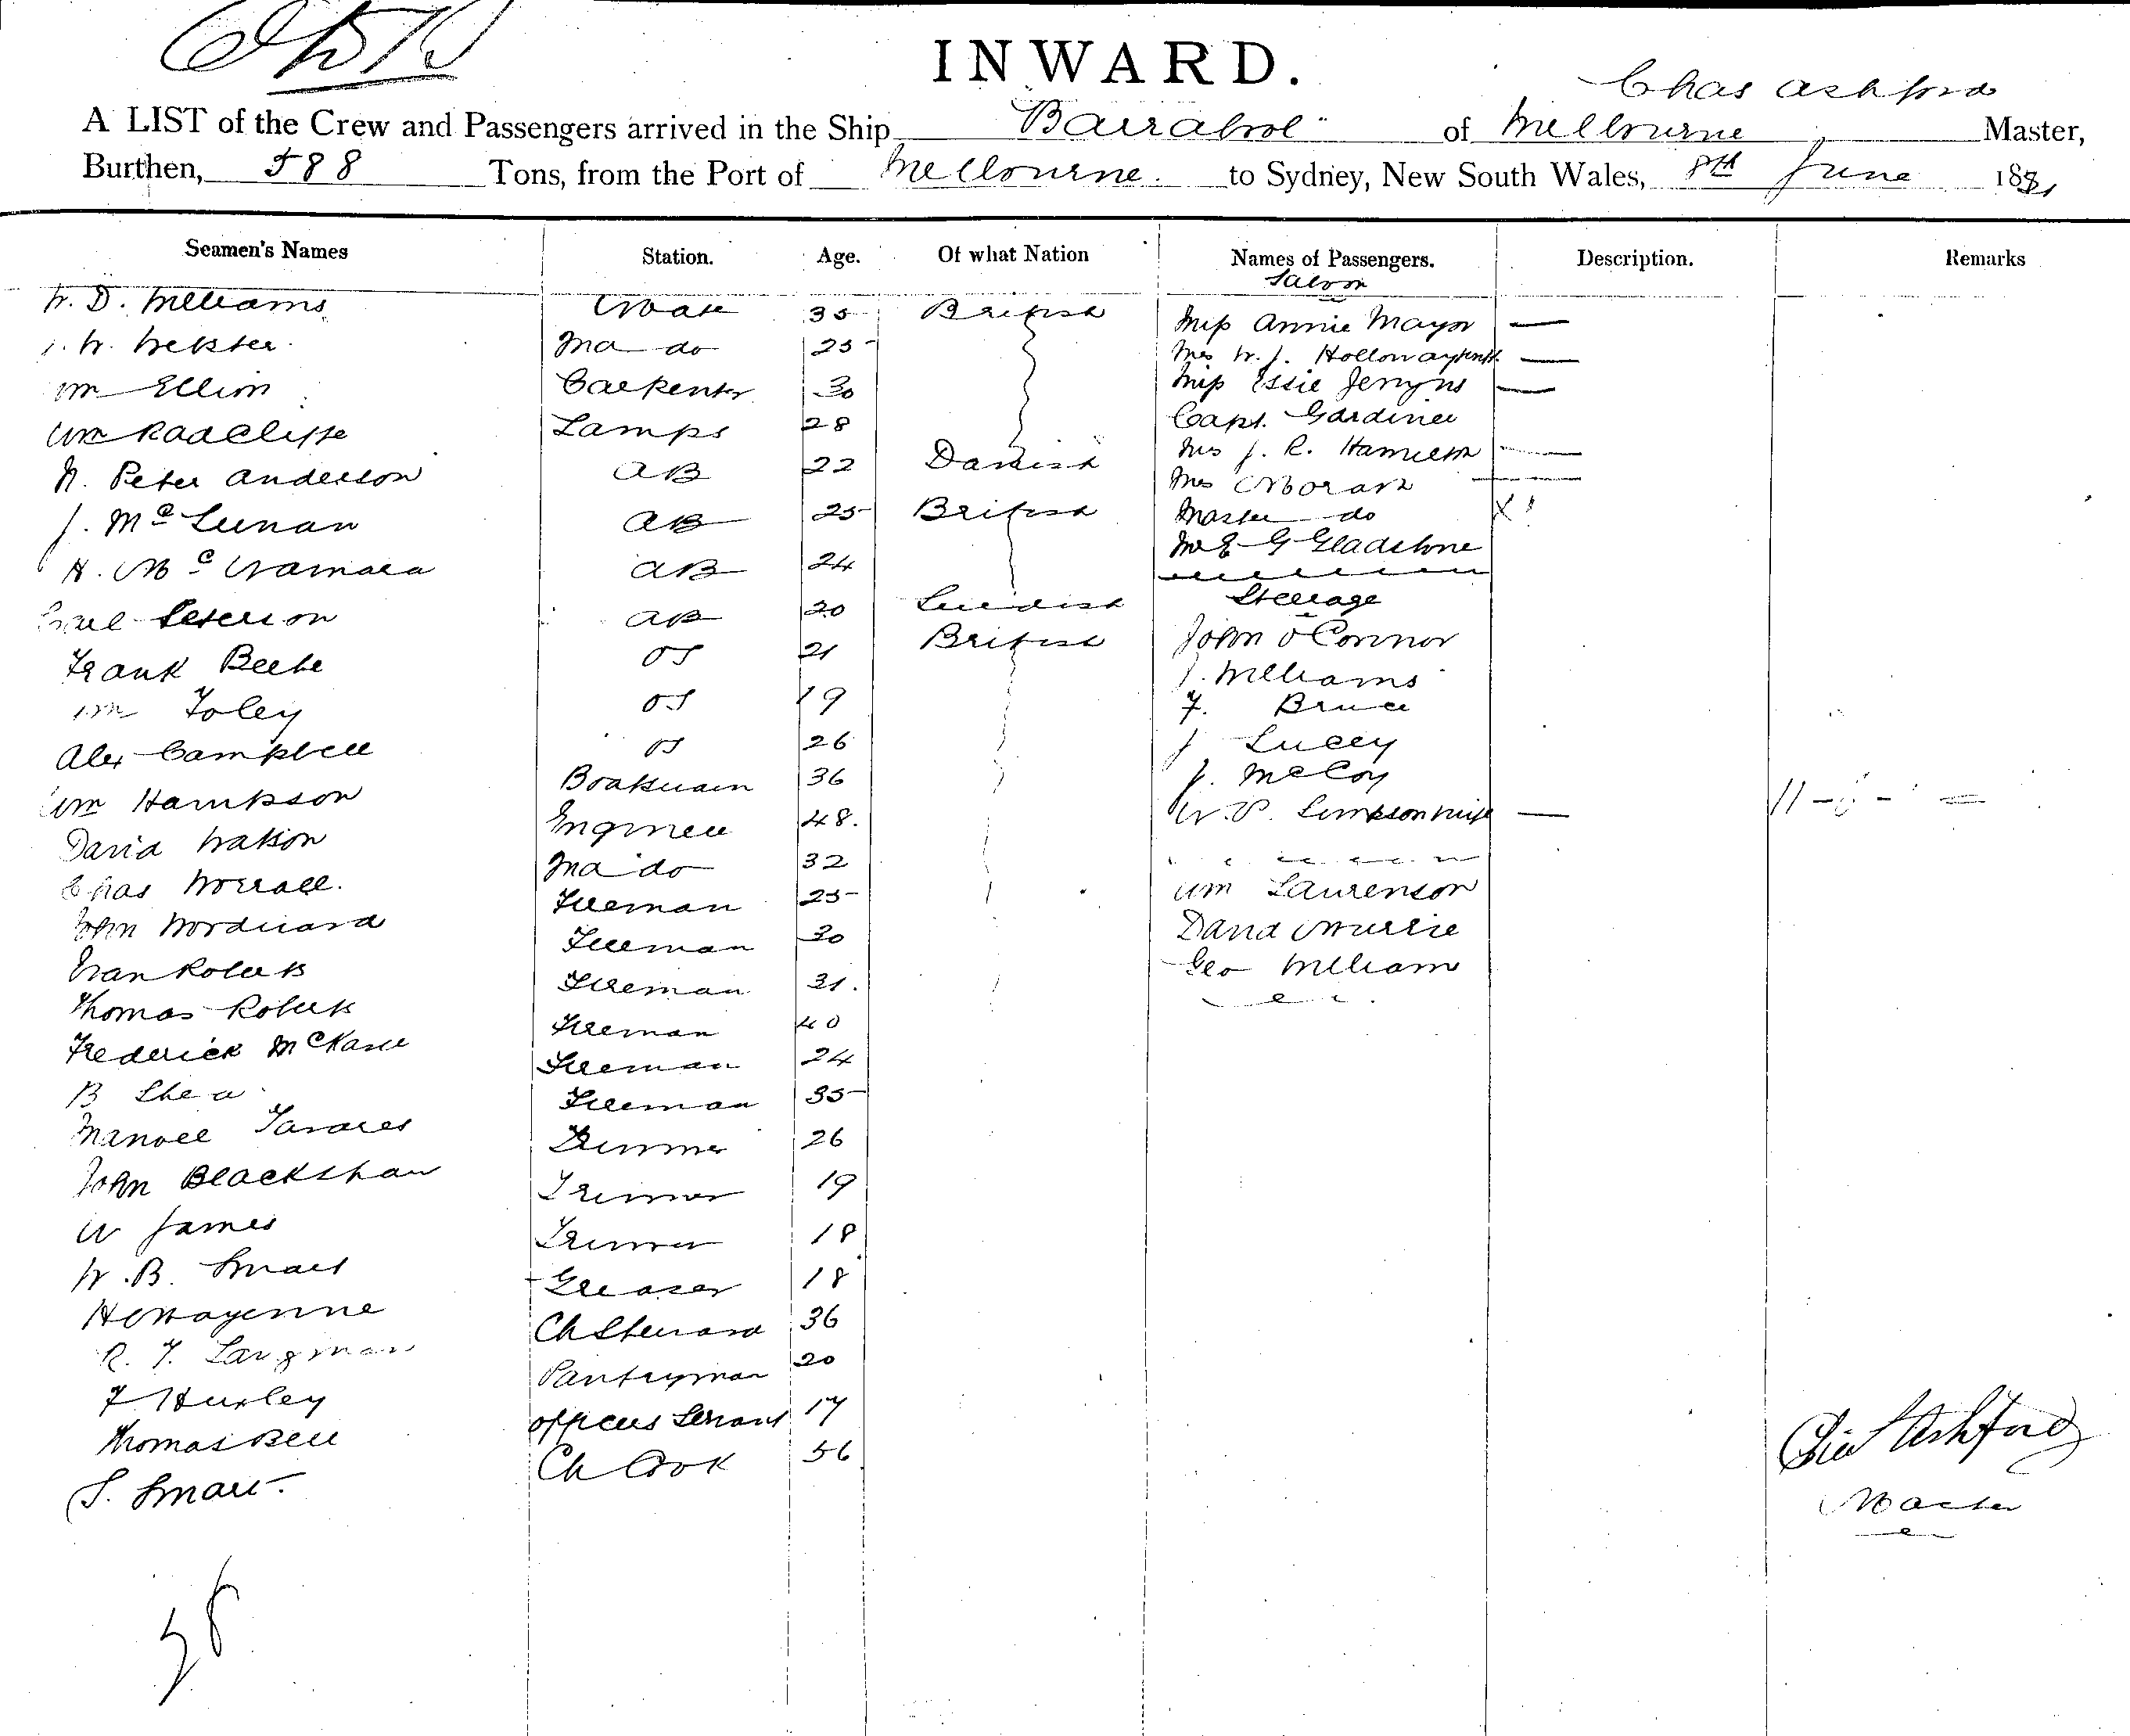 INWARD.
Chas Ashford
A LIST of the Crew and Passengers arrived in the Ship "Barrabool" of Melbourne Master,
Burthen, 588 Tons, from the Port of Melbourne. to Sydney, New South Wales, 8th June 1891
Seamen's Names Station. Age. Of what Nation Names of Passengers. Description. Remarks
Saloon
W. D. Williams Mate 35 British Miss Annie Mayor
W. Webster 2nd do 25 Mrs W. J. Holloway
Wm Ellion Carpenter 30 Miss Essie Jenyns
Wm Radcliffe Lamps 28 Capt. Gardiner
N. Peter Anderson AB 22 Danish Mrs J. R. Hamilton
Mrs Moran
J. McLennan AB 25 British Master do X
H. McNamara AB 24 Mr E G Gladstone
Peterson AB 20 Swedish Steerage
Frank Beebe OS 21 British John O'Connor
J. Williams
Wm Foley OS 19 F. Bruce
Alex Campbell OS 26 J Lucey
Wm Hampson Boatswain 36 J. McCoy
David Watson Engineer 48. W. P. Simpson
Chas Worrall. 2nd do 32
John Woodward Fireman 25 Wm Laurenson
Evan Roberts Fireman 30 David Murrie
Thomas Roberts Fireman 31. Geo William
Frederick McKane Fireman 40
B Shea Fireman 24
Manoel Tavares Fireman 35
John Blackshaw Trimmer 26
W James Trimmer 19
W. B. Smart Trimmer 18
Greaser 18
R. T. Langman Ch Steward 36
F Hurley Pantryman 20
Thomas Bell Officers Servant 17
S. Smart. Ch Cook 56
Chas Ashford
Master